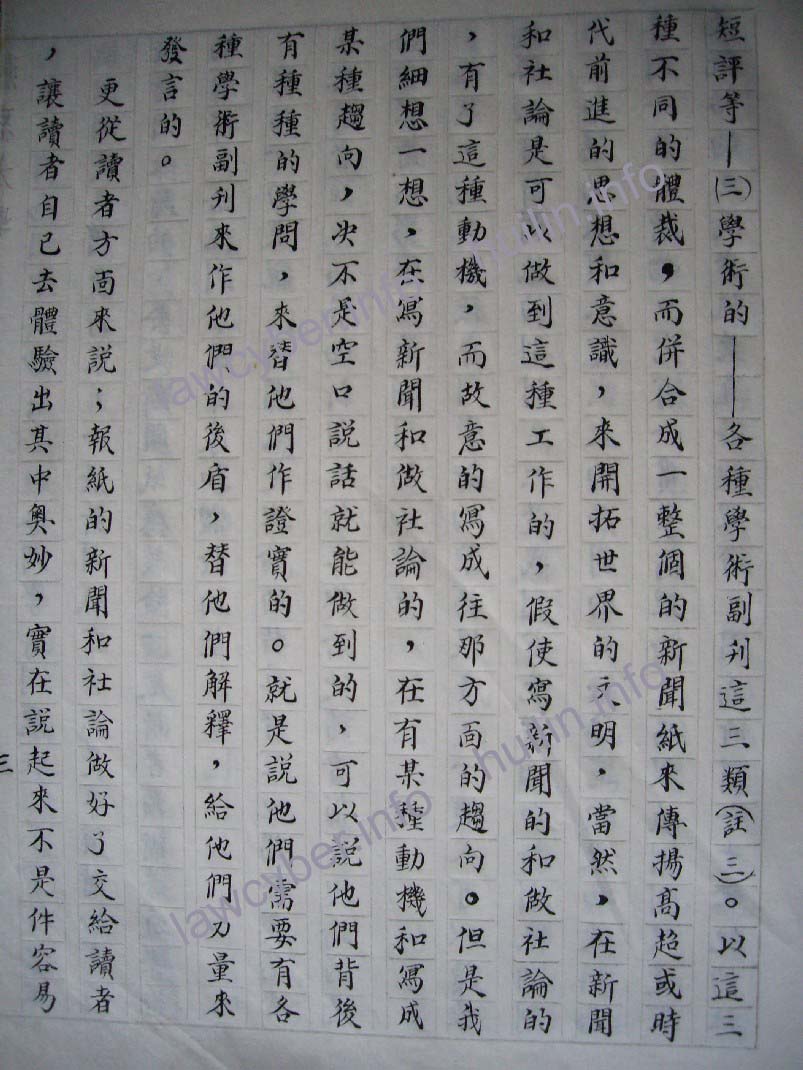 短評等—㈢學術的——各種學術副刋這三類(註三)。以這三
種不同的體裁，而併合成一整個的新聞紙來傳揚高超或時
代前進的思想和意識，來開拓世界的文明，當然，在新聞
和社論是可以做到這種工作的，假使寫新聞的和做社論的
，有了這種動機，而故意的寫成往那方面的趨向。但是我
們細想一想，在寫新聞和做社論的，在有某種動機和寫成
某種趨向，决不是空口説話就能做到的，可以説他們背後
有種種的學問，來替他們作證實的。就是説他們需要有各
種學術副刋來作他們的後盾，替他們解釋，給他們力量來
發言的。
更從讀者方面來説；報紙的新聞和社論做好了交給讀者
，讓讀者自己去體驗出其中奥妙，實在説起來不是件容易
三
lawcyber.info shulin.info
lawcyber.info shulin.info